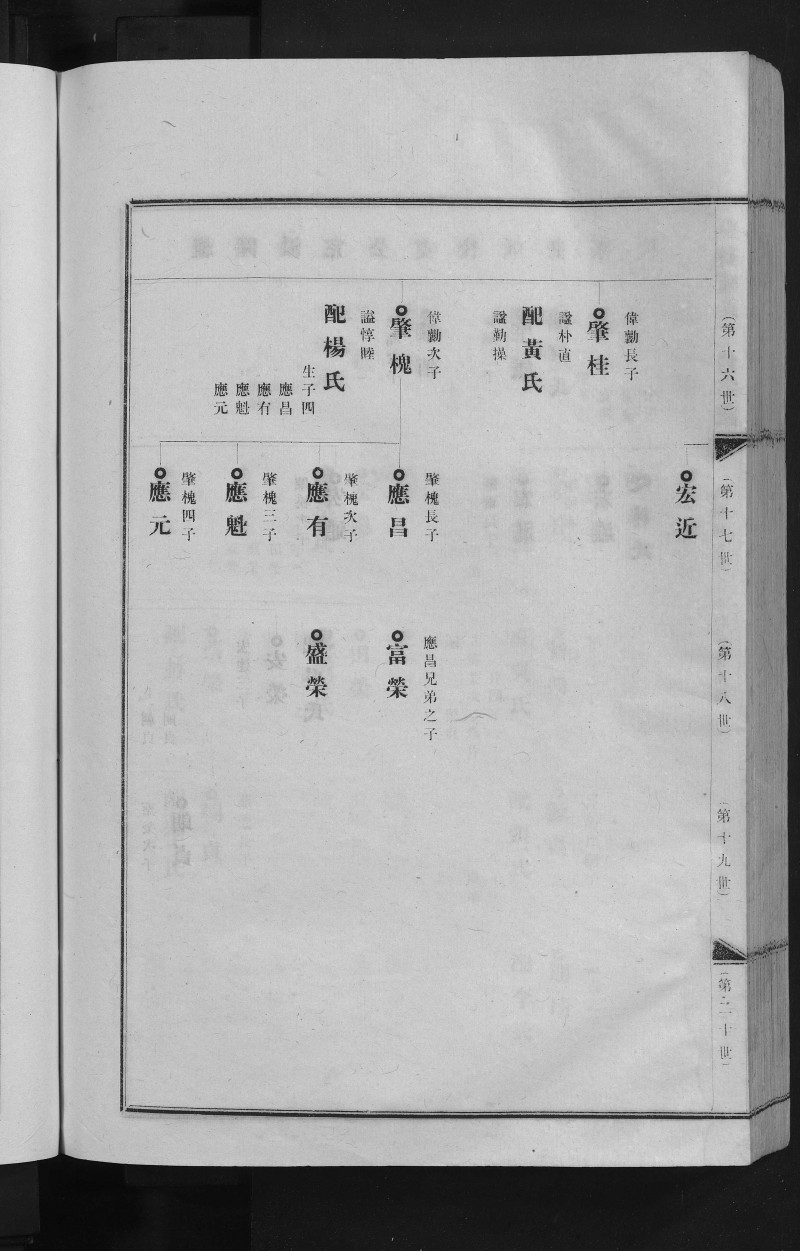 (第十六世)
偉勷長子
肇桂
諡朴直
配黃氏
諡勤操
偉勷次子
肇槐
諡惇睦
配楊氏
生子四
應昌
應有
應魁
應元
(第十七世)
宏近
肇槐長子
應昌
肇槐次子
應有
肇槐三子
應魁
肇槐四子
應元
(第十八世)
應昌兄弟之子
富榮
盛榮
(第十九世)
(第二十世)